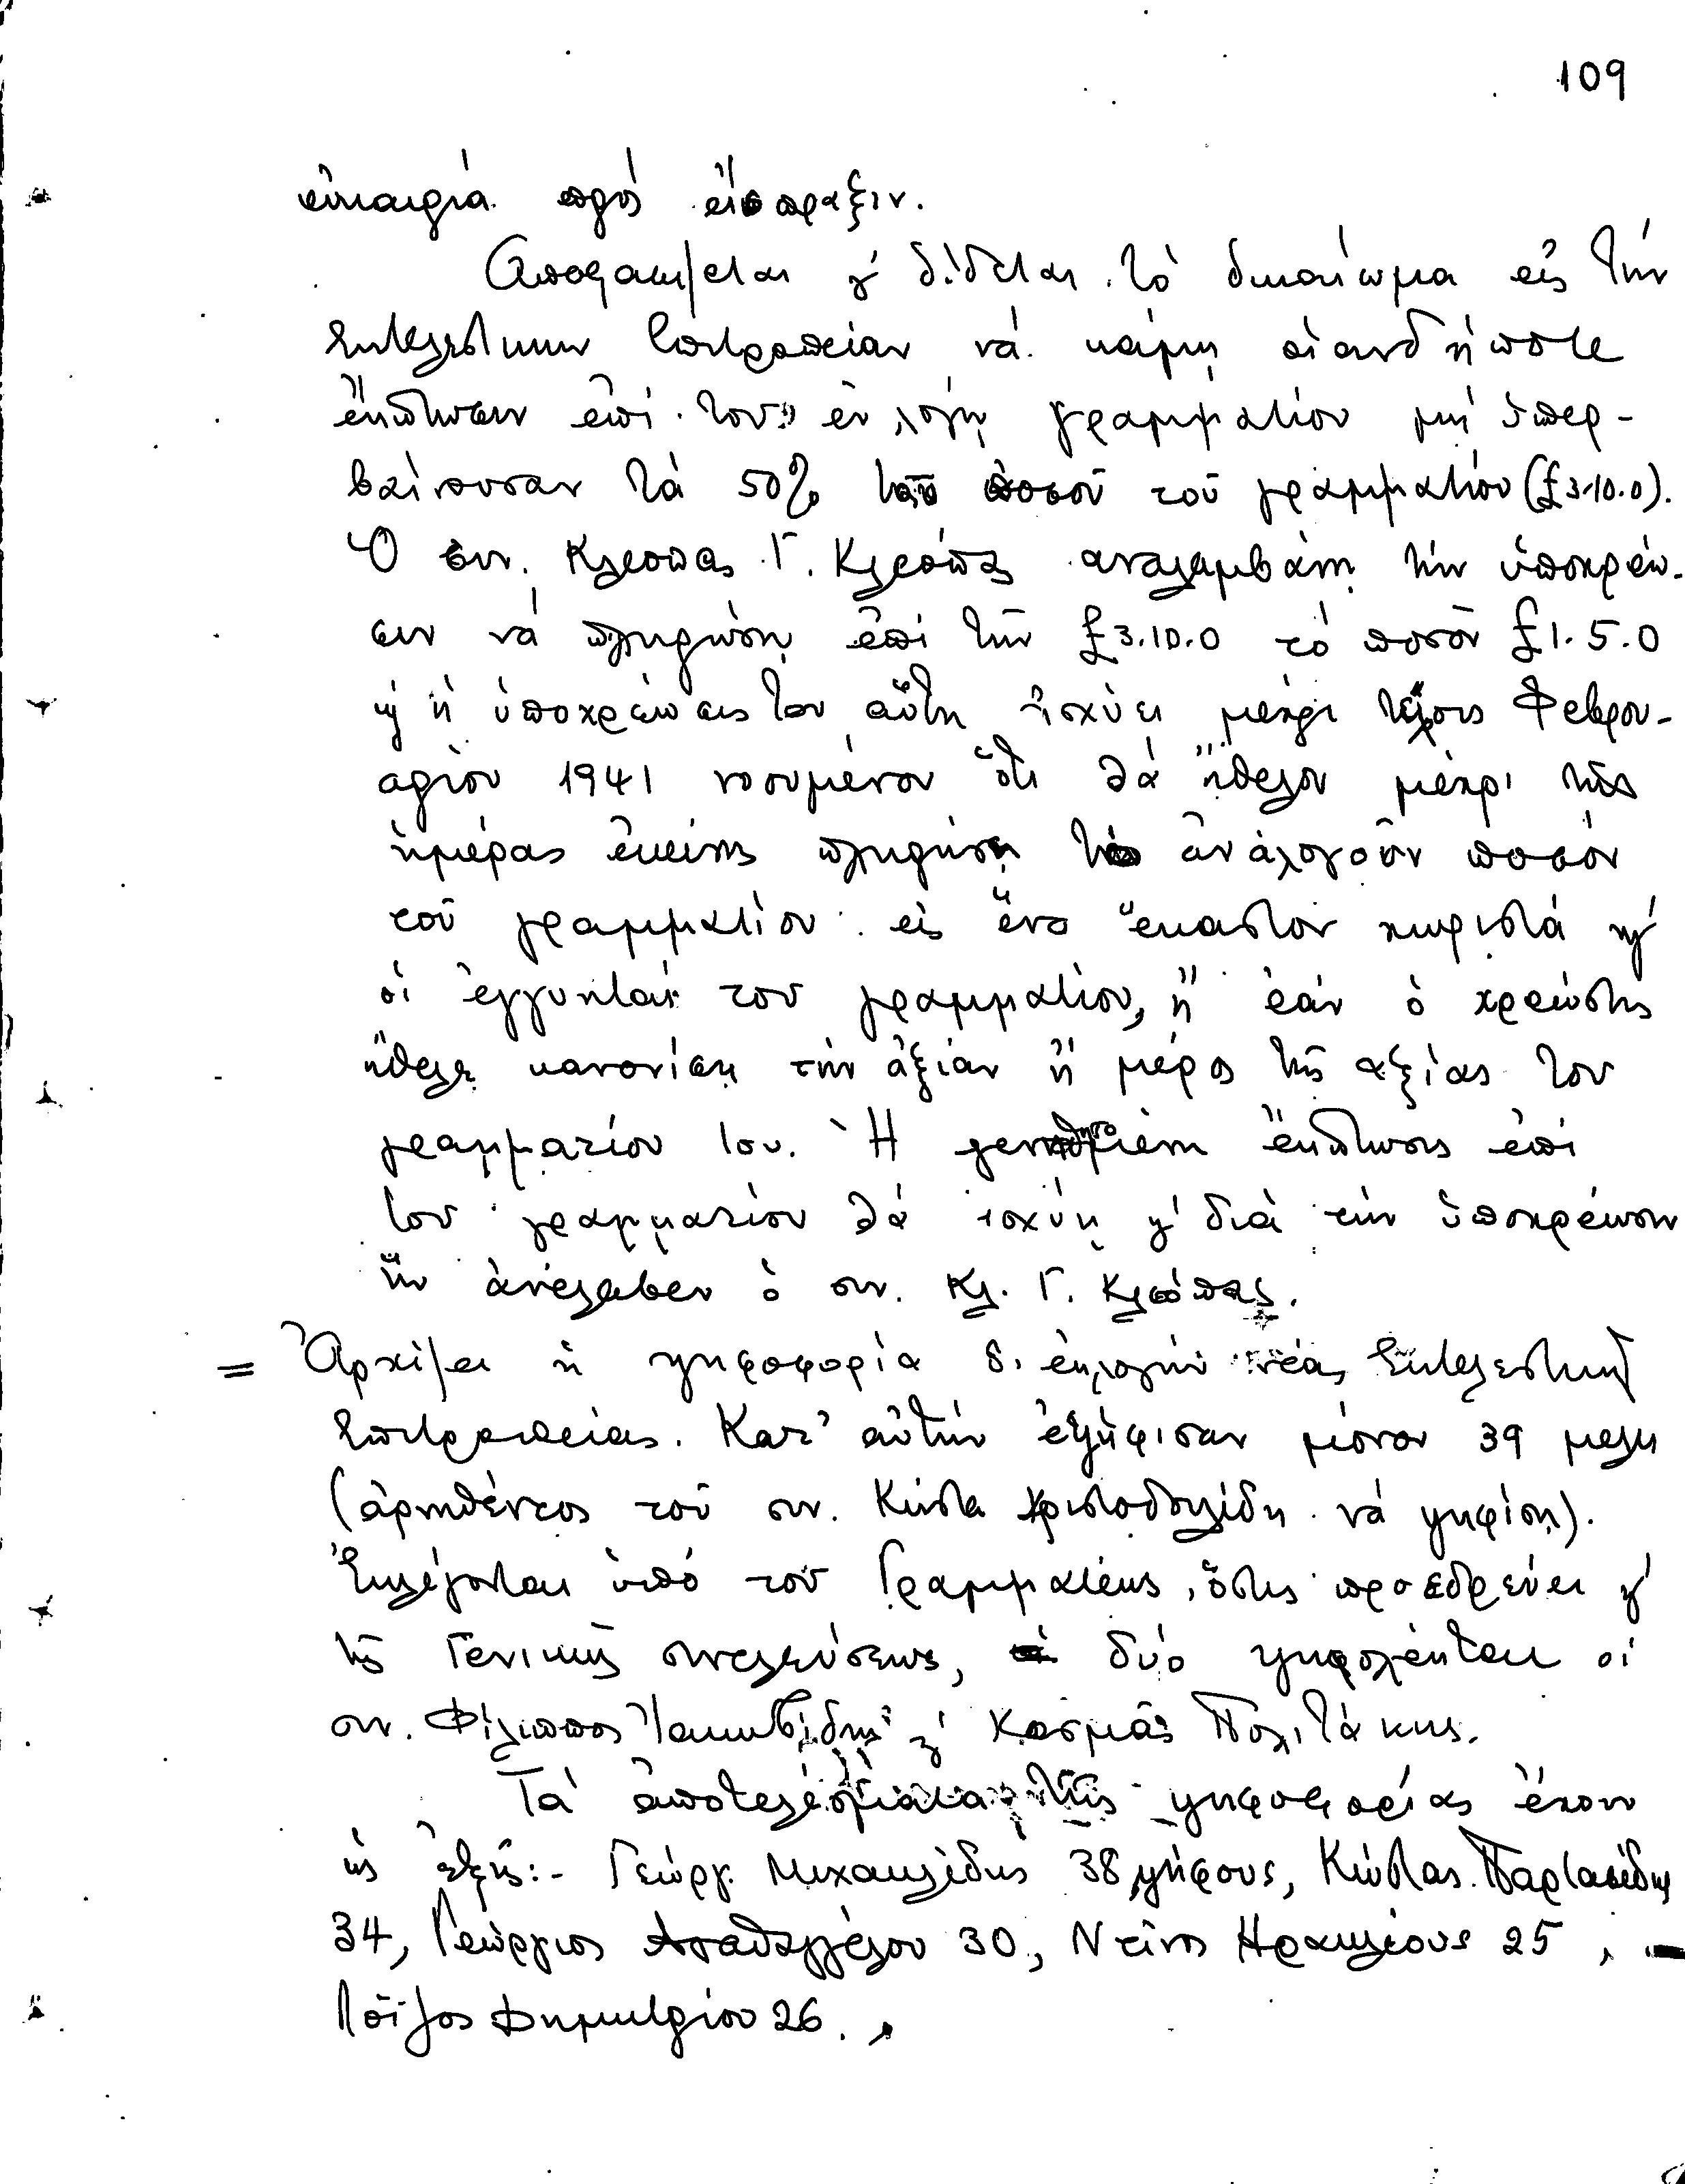 109
εὐκαιρία πρὸς εἴσπραξιν.
Ἀποφασίζεται κ' δίδεται τὸ δικαίωμα εἰς τὴν
Ἐκτελεστικὴν Ἐπιτροπείαν νά κάμῃ οἱανδήποτε
ἔκπτωσιν ἐπί τοῦ ἐν λόγῳ γραμματίου μή ὑπερ-
βαίνουσαν τά 50% τοῦ ποσοῦ τοῦ γραμματίου (£3.10.0).
Ὁ συν. Κλεοπας Γ. Κλεόπας αναλαμβάνη τήν ὑποχρέω-
σιν νά πληρώσῃ ἐπί τῶν £3.10.0 τό ποσόν £1.5.0
κ' ἡ ὑποχρέωσις του αὕτη ἰσχύει μεχρι τέλους Φεβρου-
αρίου 1941 νοουμένου ὅτι θά ἤθελον μέχρι τῆς
ἡμέρας ἐκείνης πληρώσῃ τό ἀνάλογοῦν ποσόν
τοῦ γραμματίου εἰς ἕνα ἕκαστον χωριστά κ'
οἱ ἐγγυηταί του γραμματίου, ἤ ἐάν ὁ χρεώστης
ἤθελε κανονίσῃ τήν ἀξίαν ἤ μέρος τῆς ἀξίας του
γραμματίου του. Ἡ γενησομένη ἔκπτωσις ἐπί
του γραμματίου θά ἰσχύῃ κ' διά τήν ὑποχρέωσιν
ἥν ἀνέλαβεν ὁ συν. Κλ. Γ. Κλεόπας.
= Ἀρχίζει ἡ ψηφοφορία δι ἐκλογήν νέας Ἐκτελεστικῆς
Ἐπιτροπείας. Κατ' αὐτήν ἐψήφισαν μόνον 39 μελη
(ἀρνηθέντος τοῦ συν. Κώστα Χριστοδουλίδη νά ψηφίσῃ).
Ἐκλέγονται ὑπό τοῦ Γραμματέως, ὅστις προεδρεύει κ'
τῆς Γενικῆς συνελεύσεως, δύο ψηφολέκται οἱ
συν. Φίλιππος Ἰακωβίδης κ' Κοσμᾶς Πολιτάκης.
Τά ἀποτελέσματα τῆς ψηφοφορίας ἔχουν
ὡς ἑξῆς:- Γεώργ. Μιχαηλίδης 38 ψήφους, Κώστας
34, Γεώργιος Παπαγγέλου 30, Ντῖνος Ηρακλέους 25,
Λοΐζος Δημητρίου 26.